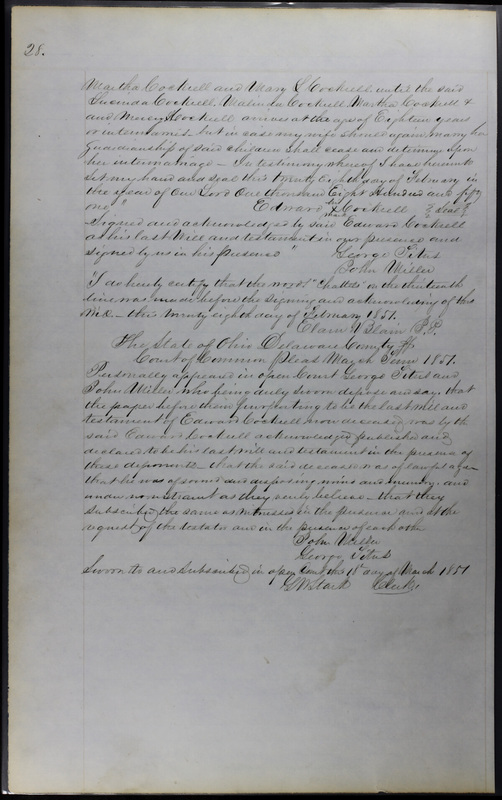 28.
Martha Cockrell and Mary S Cockrell until the said
Lucinda Cockrell Malinda Cockrell Martha Cockrell &
and Mercy Cockrell arrives at the age of Eighteen years
or intermarries but in case my wife should again marry her
Guardianship of said children shall cease and determine upon
her intermarriage – In testimony whereof I have hereunto
set my hand and seal this twenty Eighth day of February in
the year of Our Lord One thousand Eight Hundred and fifty
one" Edward his X mark Cockrell Seal
Signed and acknowledged by said Edward Cockrell
as his last Will and testament in our presence and
signed by us in his presence" George Titus
John Miller
"I do hereby certify that the word "Chattels" on the thirteenth
line was made before the signing and acknowledging of this
Will – this twenty eighth day of February 1851.
Blain J.P.
The State of Ohio Delaware County ss
Court of Common Pleas March Term 1851.
Personally appeared in open Court George Titus and
John Miller who being duly sworn depose and say that
the paper before them purporting to be the last will and
testament of Edward Cockrell now deceased was by the
said Edward Cockrell acknowledged published and
declared to be his last will and testament in the presence of
these deponents – that the said deceased was of lawful age –
that he was of sound and disposing mind and memory and
under no restraint as they verily believe – that they
subscribed the same as witnesses in the presence and at the
request of the testator and in the presence of each other
John Miller
George Titus
Sworn to and subscribed in open Court this 18th day of March 1851
Clerk